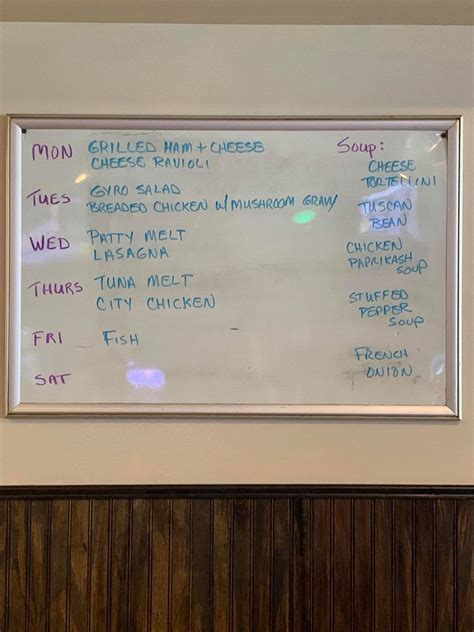 MON GRILLED HAM + CHEESE
CHEESE RAVIOLI
TUES GYRO SALAD
BREADED CHICKEN W/ MUSHROOM GRAVY
WED PATTY MELT
LASAGNA
THURS TUNA MELT
CITY CHICKEN
FRI FISH
SAT
SOUP:
CHEESE
TORTELLINI
TUSCAN
BEAN
CHICKEN
PAPRIKASH
SOUP
STUFFED
PEPPER
SOUP
FRENCH
ONION